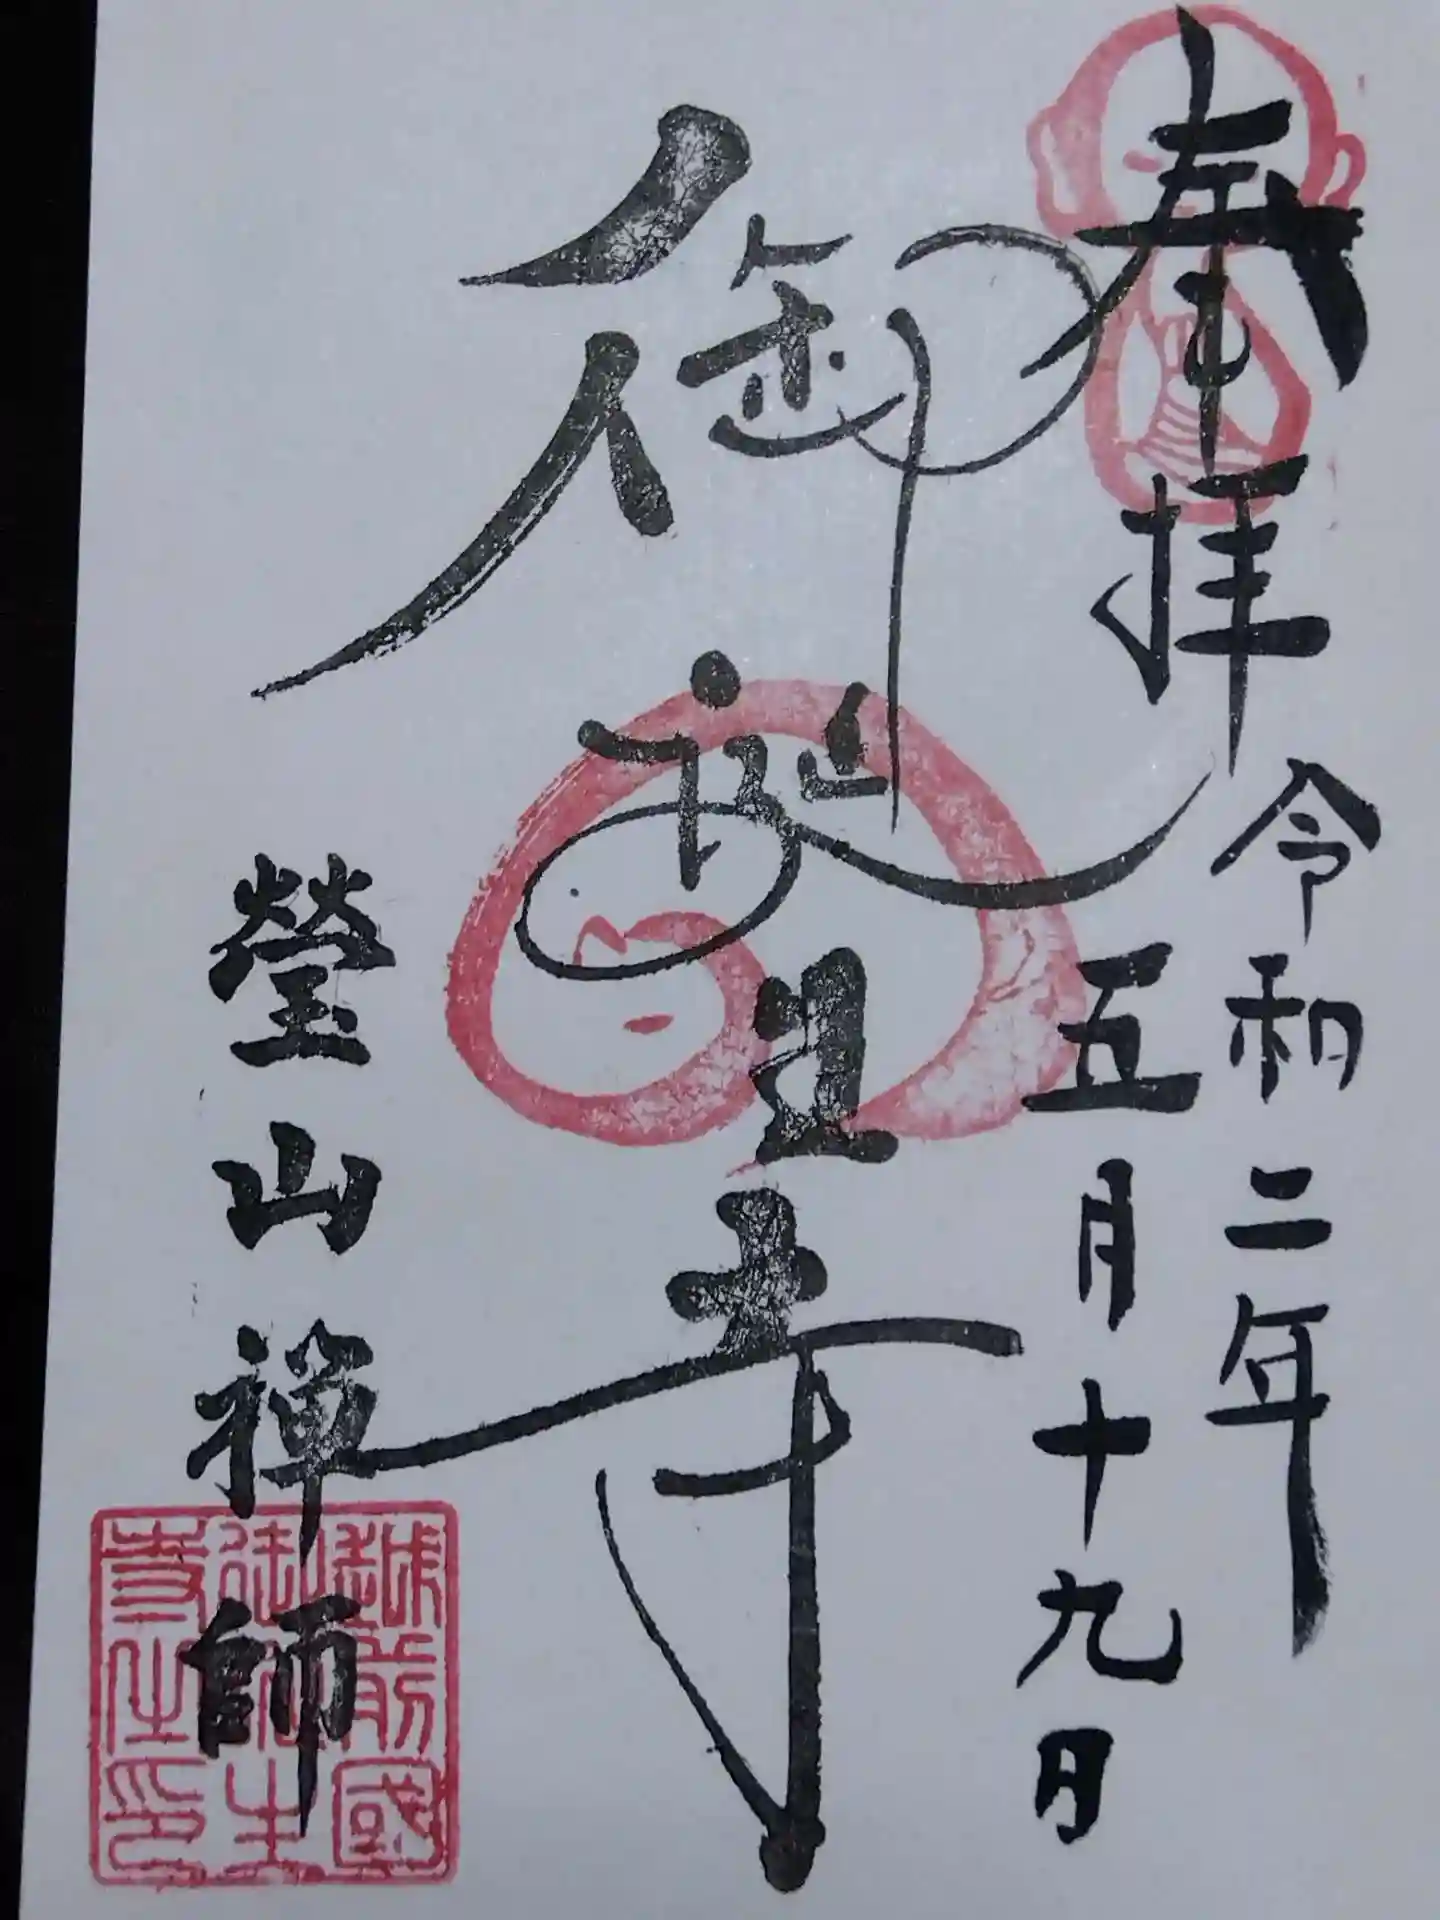 奉拝
令和二年
五月十九日
御誕生寺
瑩山禅師
越前國
御誕生
寺之印